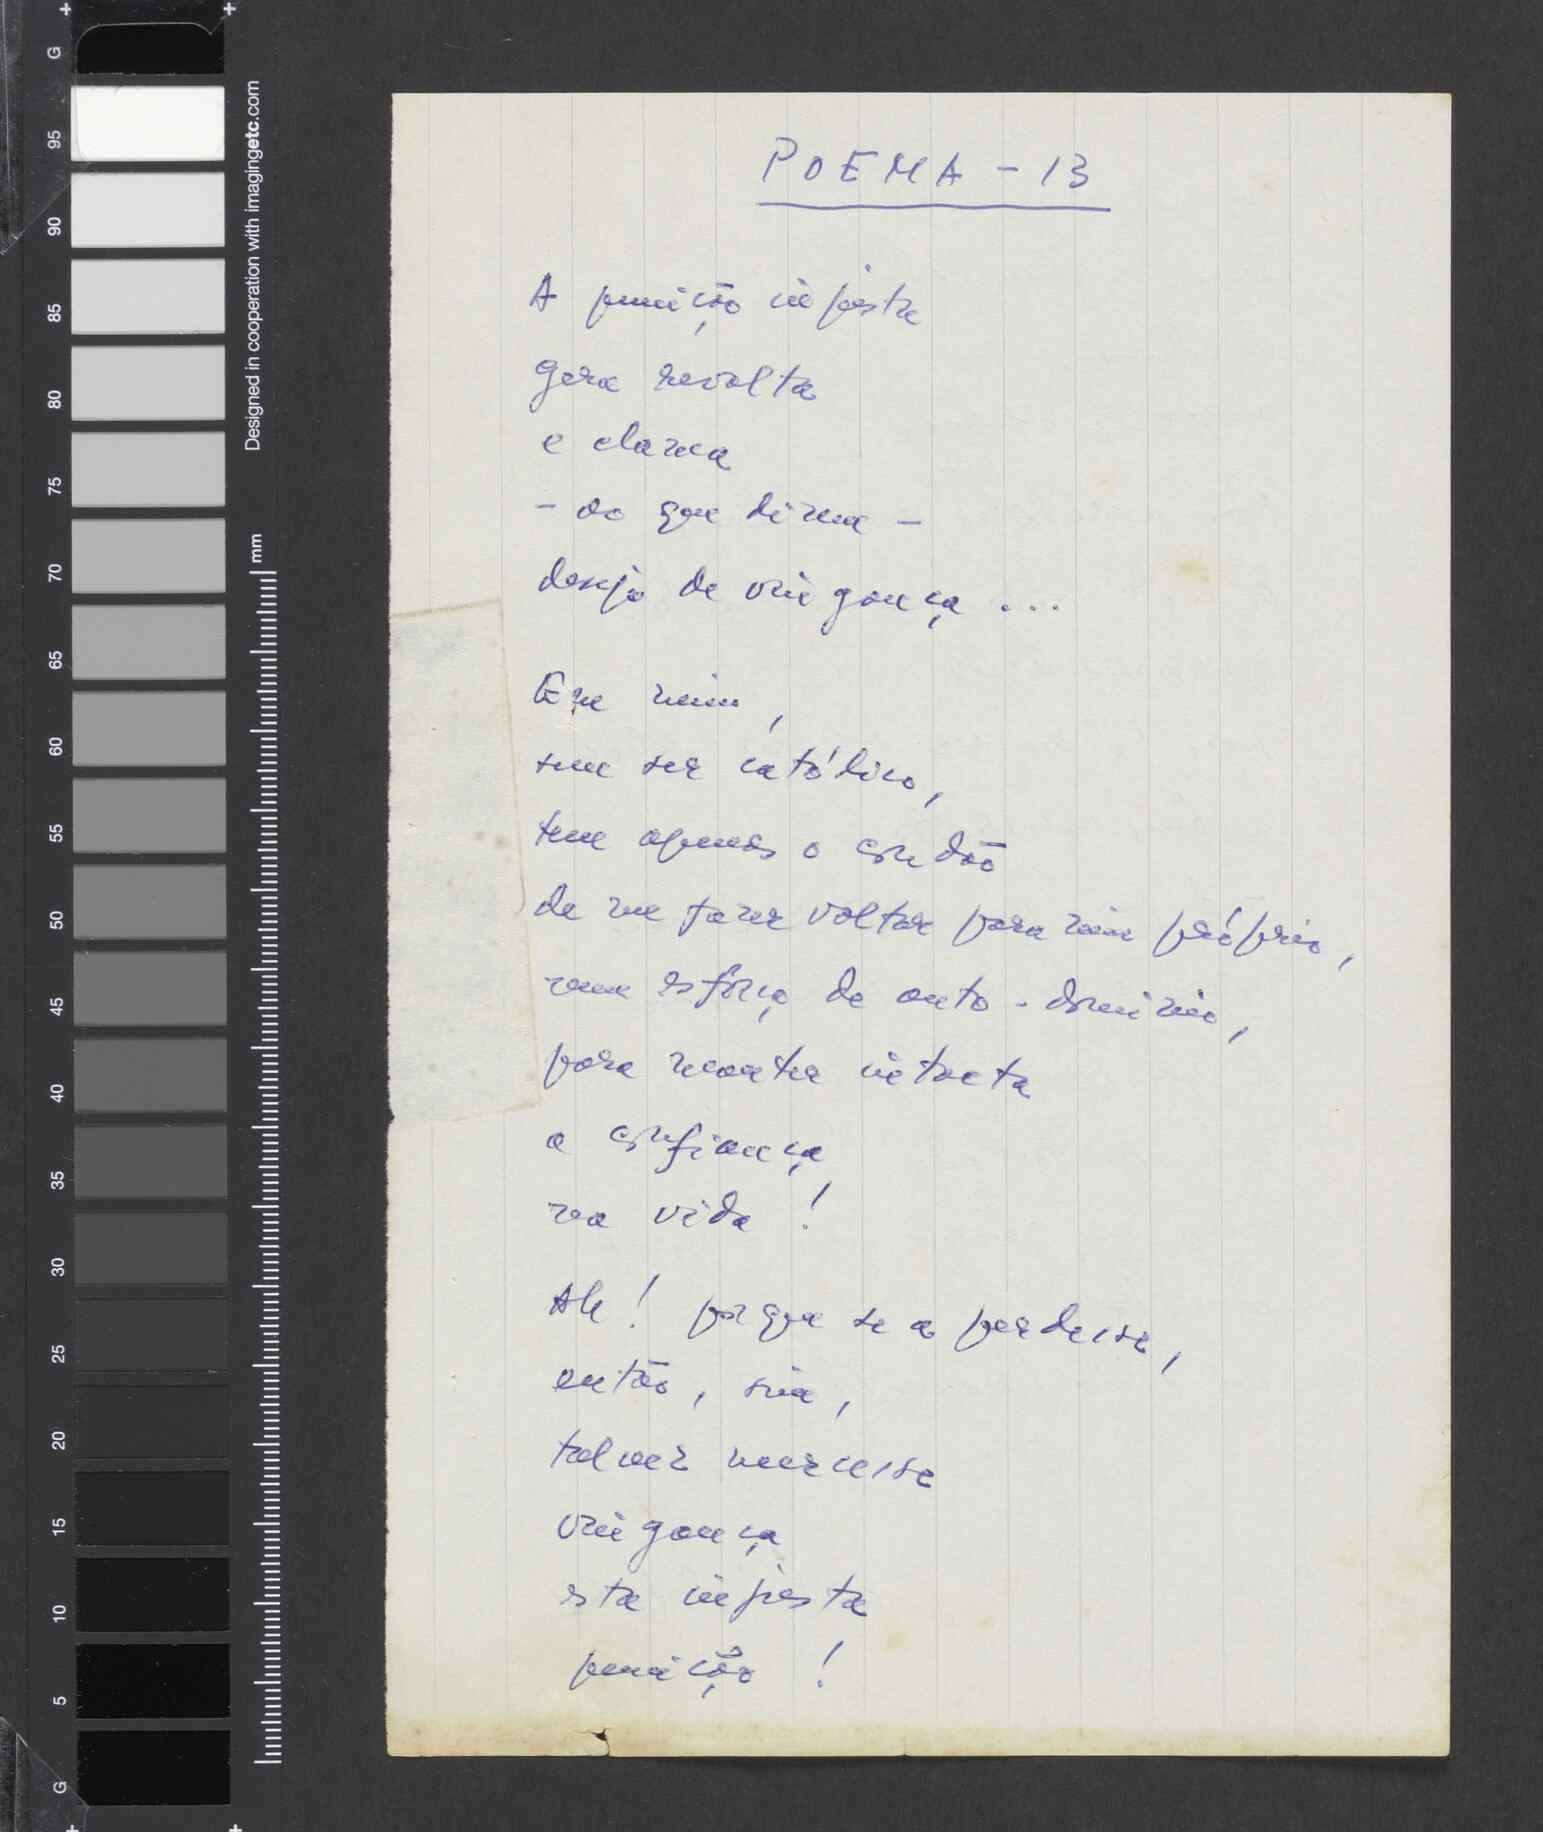 POEMA - 13
A punição injusta
gera revolta
e clama
- ao que dizem -
desejo de vingança ...
Em mim,
sem ser católico,
tem apenas o condão
de me fazer voltar para mim próprio,
num esforço de auto-domínio,
para manter intacta
a confiança
na vida !
Ah ! porque se a perdesse,
então, sim,
talvez merecesse
vingança
esta injusta
punição !
G
95
90
85
80
75
70
65
60
55
50
45
40
35
30
25
20
15
10
5
G
Designed in cooperation with imagingetc.com
mm